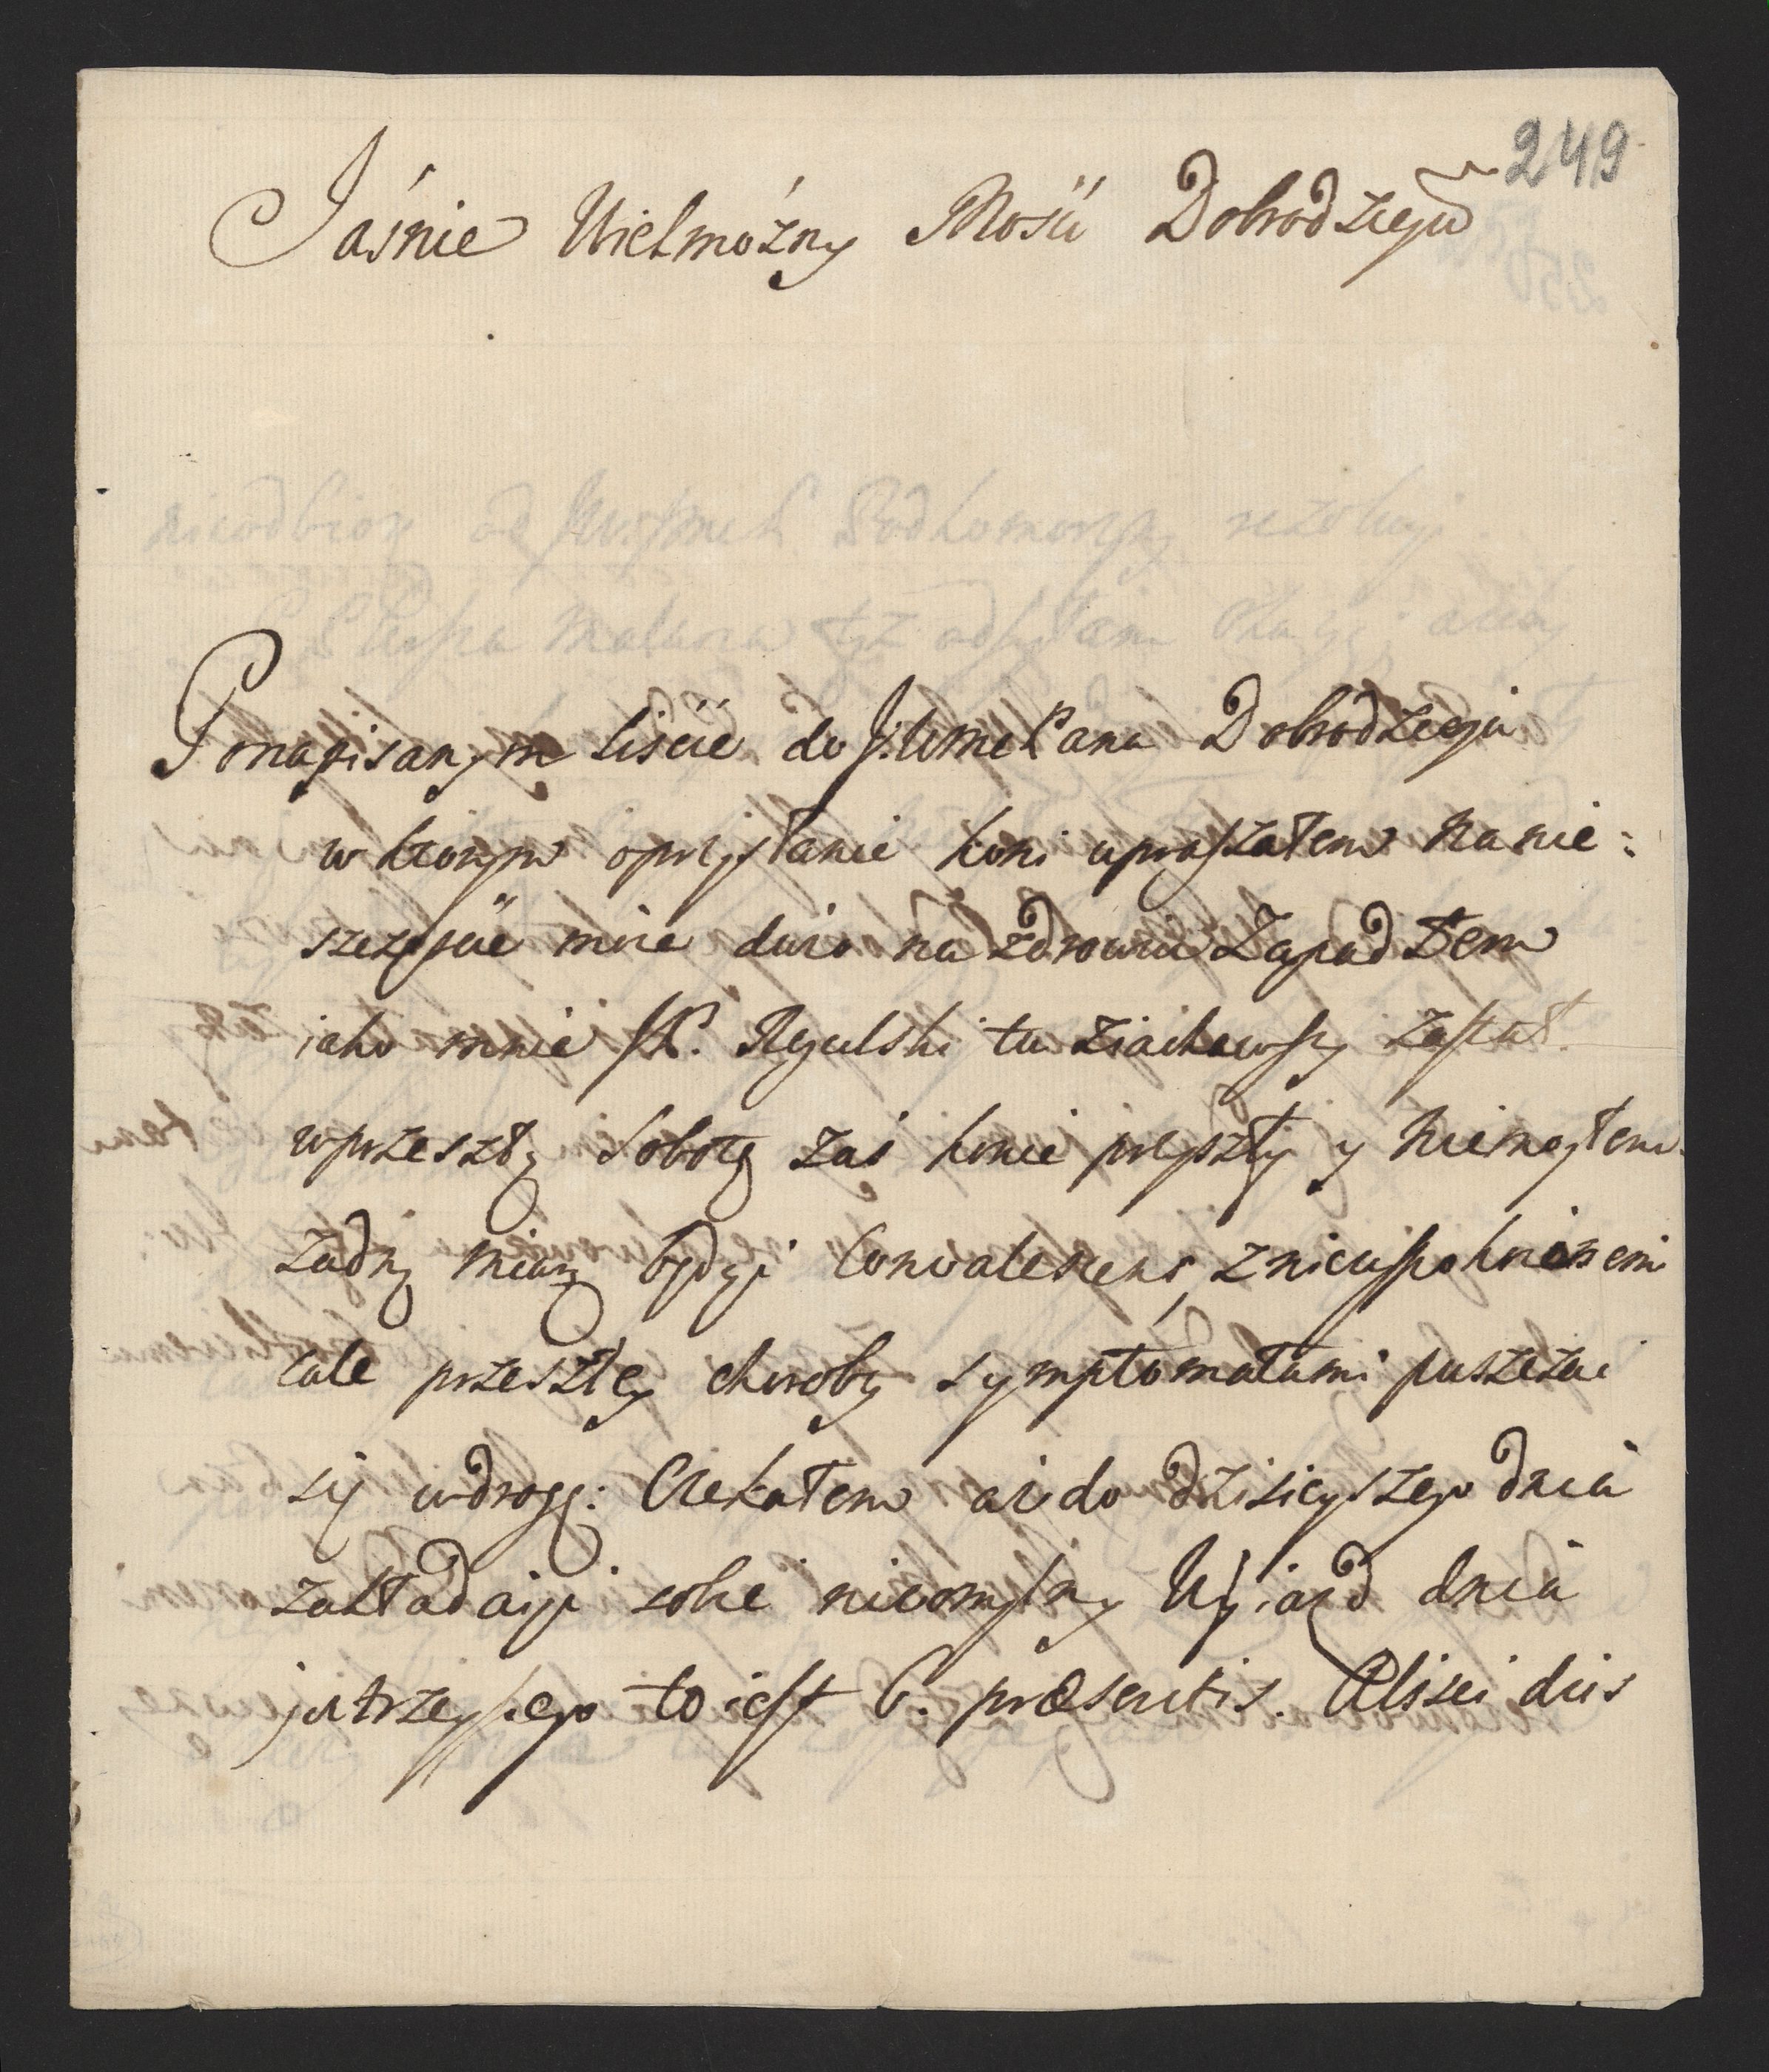 249
Jaśnie Wielmożny Mości Dobrodzieju
Ponapisanym liście do J. Wmć Pana Dobrodzieja
w ktorym oprzysłanie koni upraszałem nanie:
szczęście moie dużo na zdrowiu Zapadłem
iako mnie JP. Regulski tu ziachawszy zastał.
wprzeszłą Sobotę zaś konie przyszły y niemogłem
żadną miarą będąc Convalescens, z
cale przeszłey choroby symptomatami puszczać
się wdrogę: Czekałem aż do dzisieyszego dnia
zakładaiąc sobie nieomylny Wyiazd dnia
jutrzeyszego to iest 6. præsentis. Aliści dziś